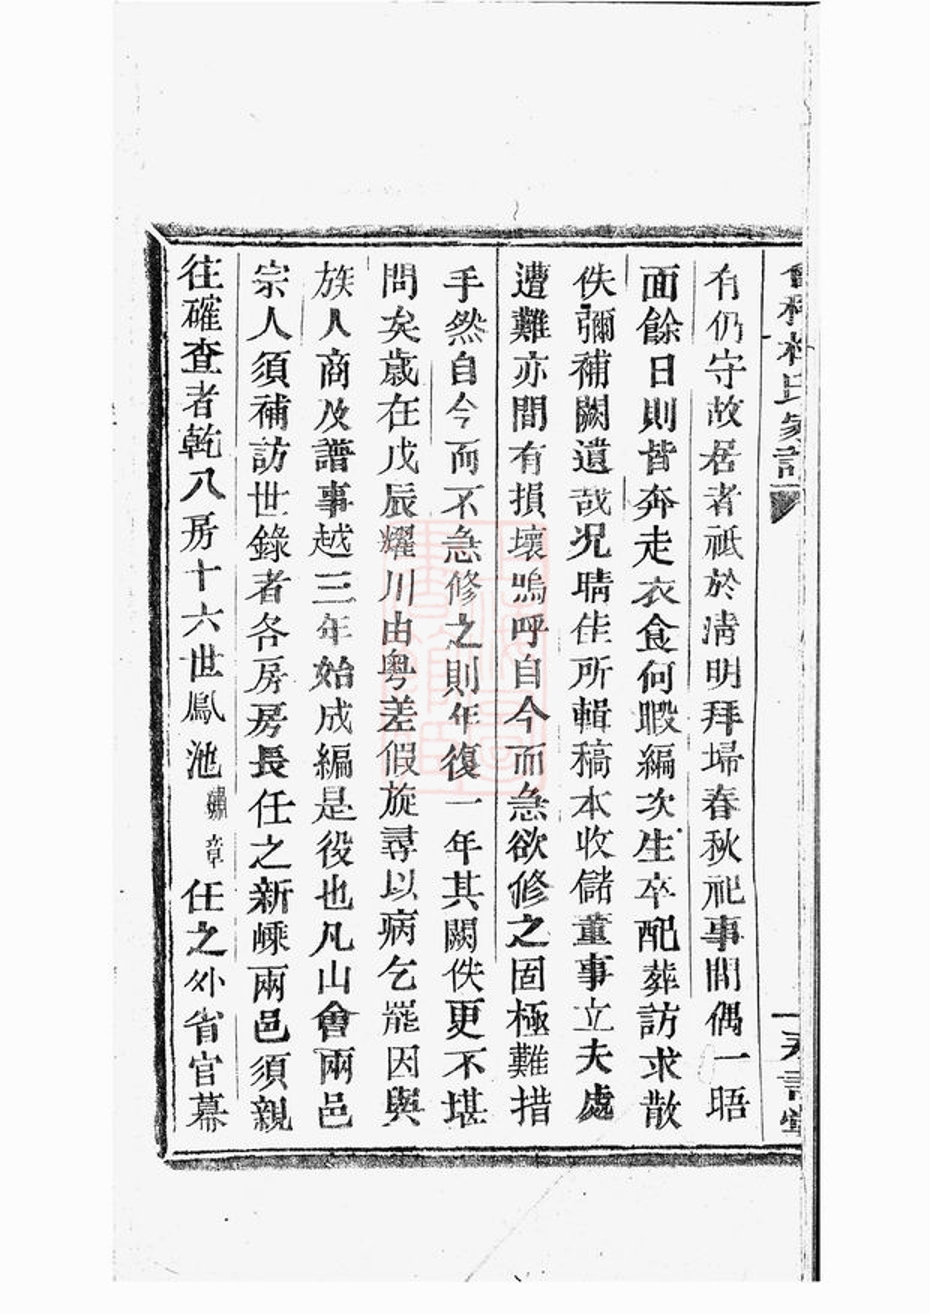 有仍守故居者祗於清明拜埽春秋祀事間偶一晤
面餘日則皆奔走衣食何暇編次生卒配葬訪求散
佚彌補闕遺哉況晴佳所輯稿本收儲董事立夫處
遭難亦間有損壞嗚呼自今而急欲修之固極難措
手然自今而不急修之則年復一年其闕佚更不堪
問矣歲在戊辰耀川由粵差假旋尋以病乞罷因與
族人商及譜事越三年始成編是役也凡山會兩邑
宗人須補訪世錄者各房房長任之新嵊兩邑須親
往確查者乾八房十六世鳳池 章任之外省官幕